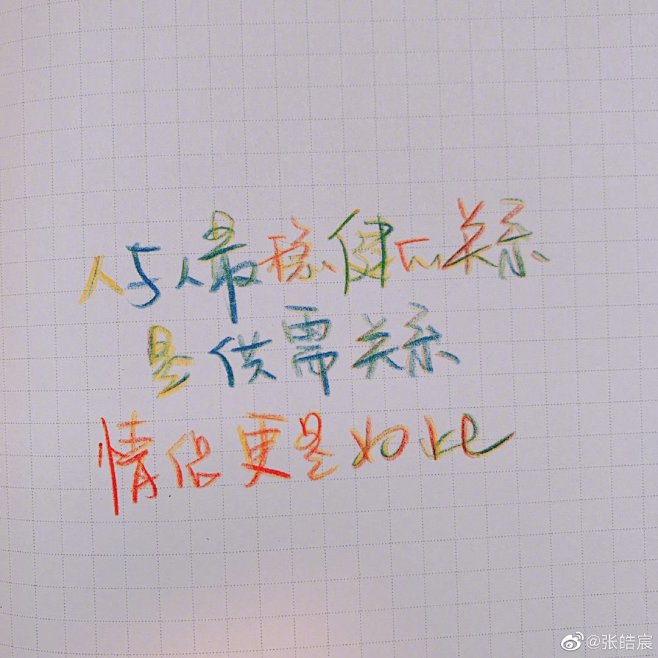 人与人最稳健的关系
是供需关系
情侣更是如此
@张皓宸